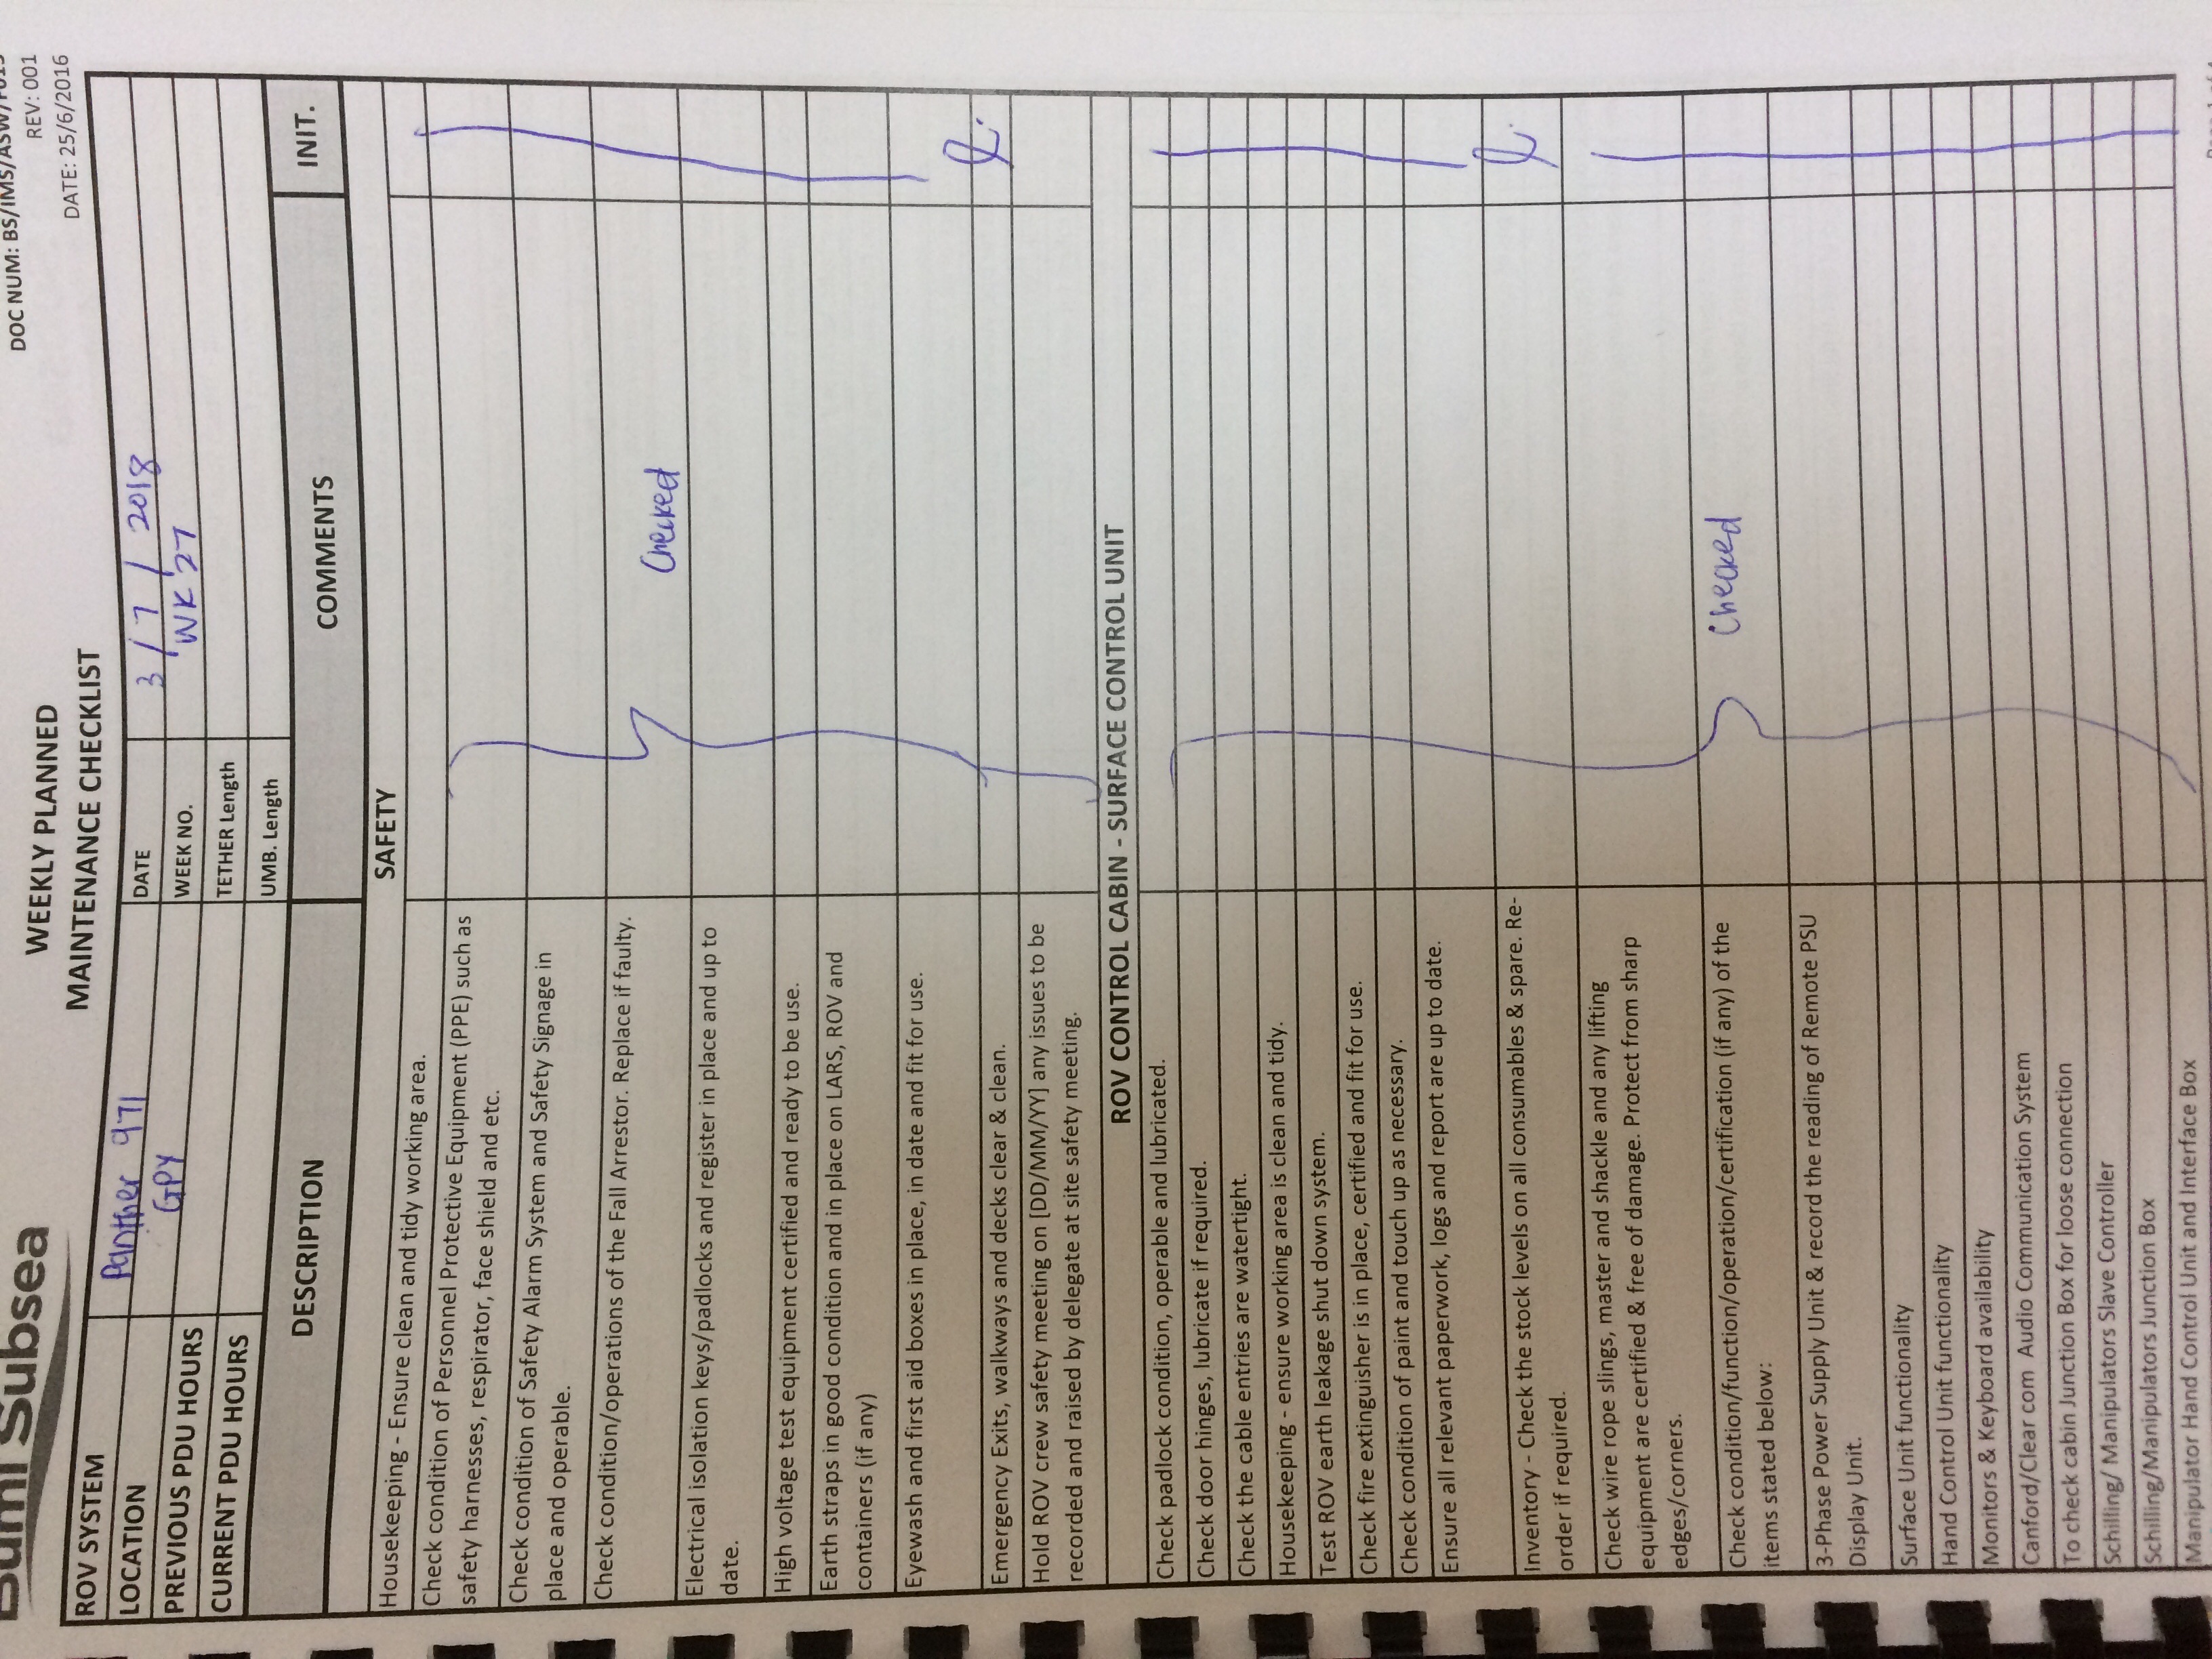 Bumi Subsea
WEEKLY PLANNED
MAINTENANCE CHECKLIST
DOC NUM: BS/IMS/ASW/F015
REV: 001
DATE: 25/6/2016
ROV SYSTEM Panther 971
LOCATION GPY
PREVIOUS PDU HOURS
CURRENT PDU HOURS
DATE 3/7/2018
WEEK NO. WK 27
TETHER Length
UMB. Length
DESCRIPTION COMMENTS INIT.
SAFETY
Housekeeping - Ensure clean and tidy working area.
Check condition of Personnel Protective Equipment (PPE) such as
safety harnesses, respirator, face shield and etc.
Check condition of Safety Alarm System and Safety Signage in
place and operable.
Check condition/operations of the Fall Arrestor. Replace if faulty.
Checked
Electrical isolation keys/padlocks and register in place and up to
date.
High voltage test equipment certified and ready to be use.
Earth straps in good condition and in place on LARS, ROV and
containers (if any)
Eyewash and first aid boxes in place, in date and fit for use.
Emergency Exits, walkways and decks clear & clean.
Hold ROV crew safety meeting on [DD/MM/YY] any issues to be
recorded and raised by delegate at site safety meeting.
ROV CONTROL CABIN - SURFACE CONTROL UNIT
Check padlock condition, operable and lubricated.
Check door hinges, lubricate if required.
Check the cable entries are watertight.
Housekeeping - ensure working area is clean and tidy.
Test ROV earth leakage shut down system.
Check fire extinguisher is in place, certified and fit for use.
Check condition of paint and touch up as necessary.
Ensure all relevant paperwork, logs and report are up to date.
Inventory - Check the stock levels on all consumables & spare. Re-
order if required.
Check wire rope slings, master and shackle and any lifting
equipment are certified & free of damage. Protect from sharp
edges/corners.
Check condition/function/operation/certification (if any) of the
items stated below:
Checked
3-Phase Power Supply Unit & record the reading of Remote PSU
Display Unit.
Surface Unit functionality
Hand Control Unit functionality
Monitors & Keyboard availability
Canford/Clear com Audio Communication System
To check cabin Junction Box for loose connection
Schilling/ Manipulators Slave Controller
Schilling/Manipulators Junction Box
Manipulator Hand Control Unit and Interface Box